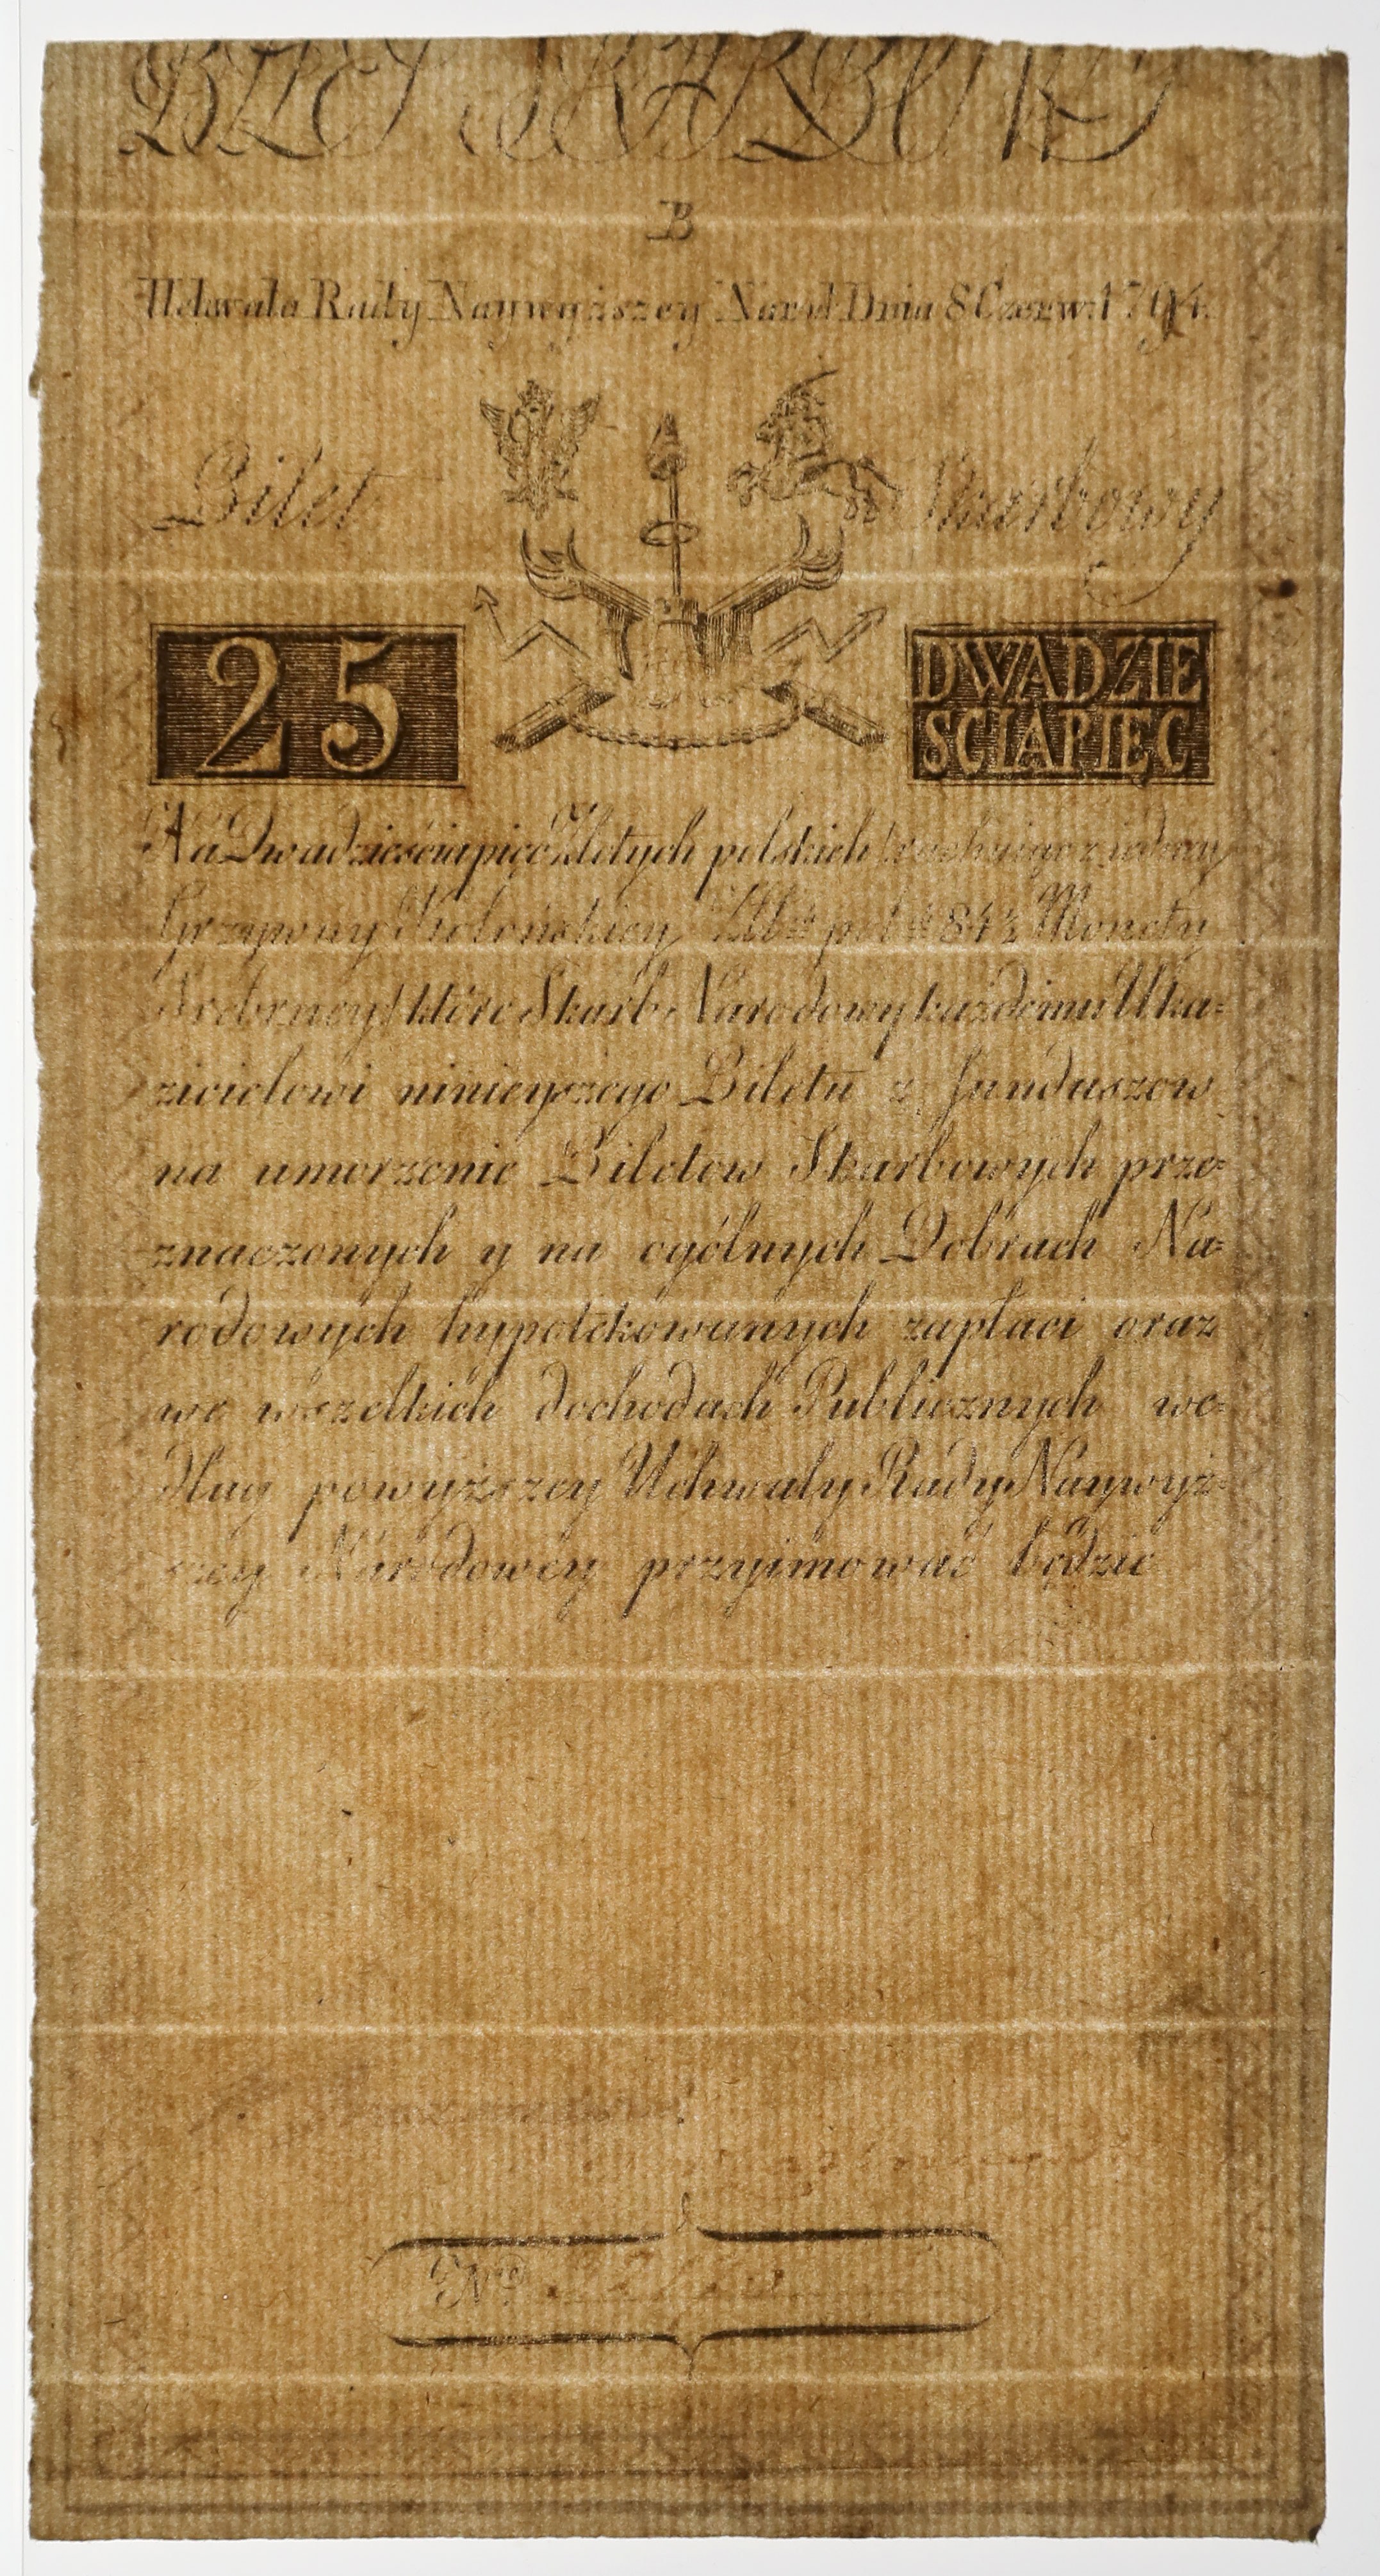 BILET SKARBOWY
B
Uchwała Rady Naywyższey Narod Dnia 8 Czerw: 1794.
Bilet Skarbowy
25
DWADZIE
SCIAPIĘC
Na Dwadzieścia pięć Złotych polskich
Grzywny Kolońskiey pol 84½ Monety
Srebrney) które Skarb Narodowy każdemu Uka=
zicielowi ninieyszego Biletu z funduszow
na umorzenie Biletow Skarbowych prze=
znaczonych y na ogólnych Dobrach Na=
rodowych hypotekowanych zapłaci oraz
we wszelkich dochodach Publicznych we=
dług powyższey Uchwały Rady Naywyż=
szey Narodowey przyimować będzie
Nro